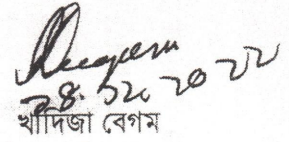 28.12.2022
খাদিজা বেগম